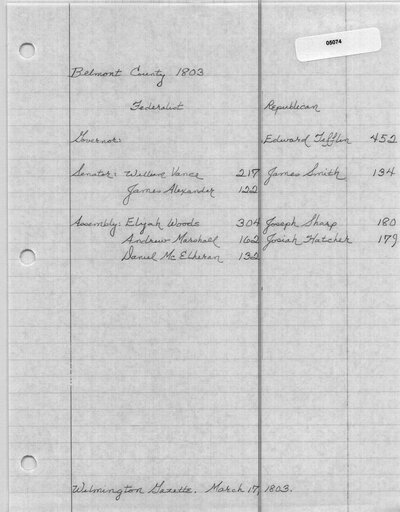 05074
Belmont County 1803
Federalist Republican
Governor: Edward Tefflin 452
Senator: William Vance 217 James Smith 134
James Alexander 122
Assembly: Elijah Woods 304 Joseph Sharp 180
Andrew Marshall 162 Josiah Hatcher 179
Daniel McElheran 132
Wilmington Gazette. March 17, 1803.